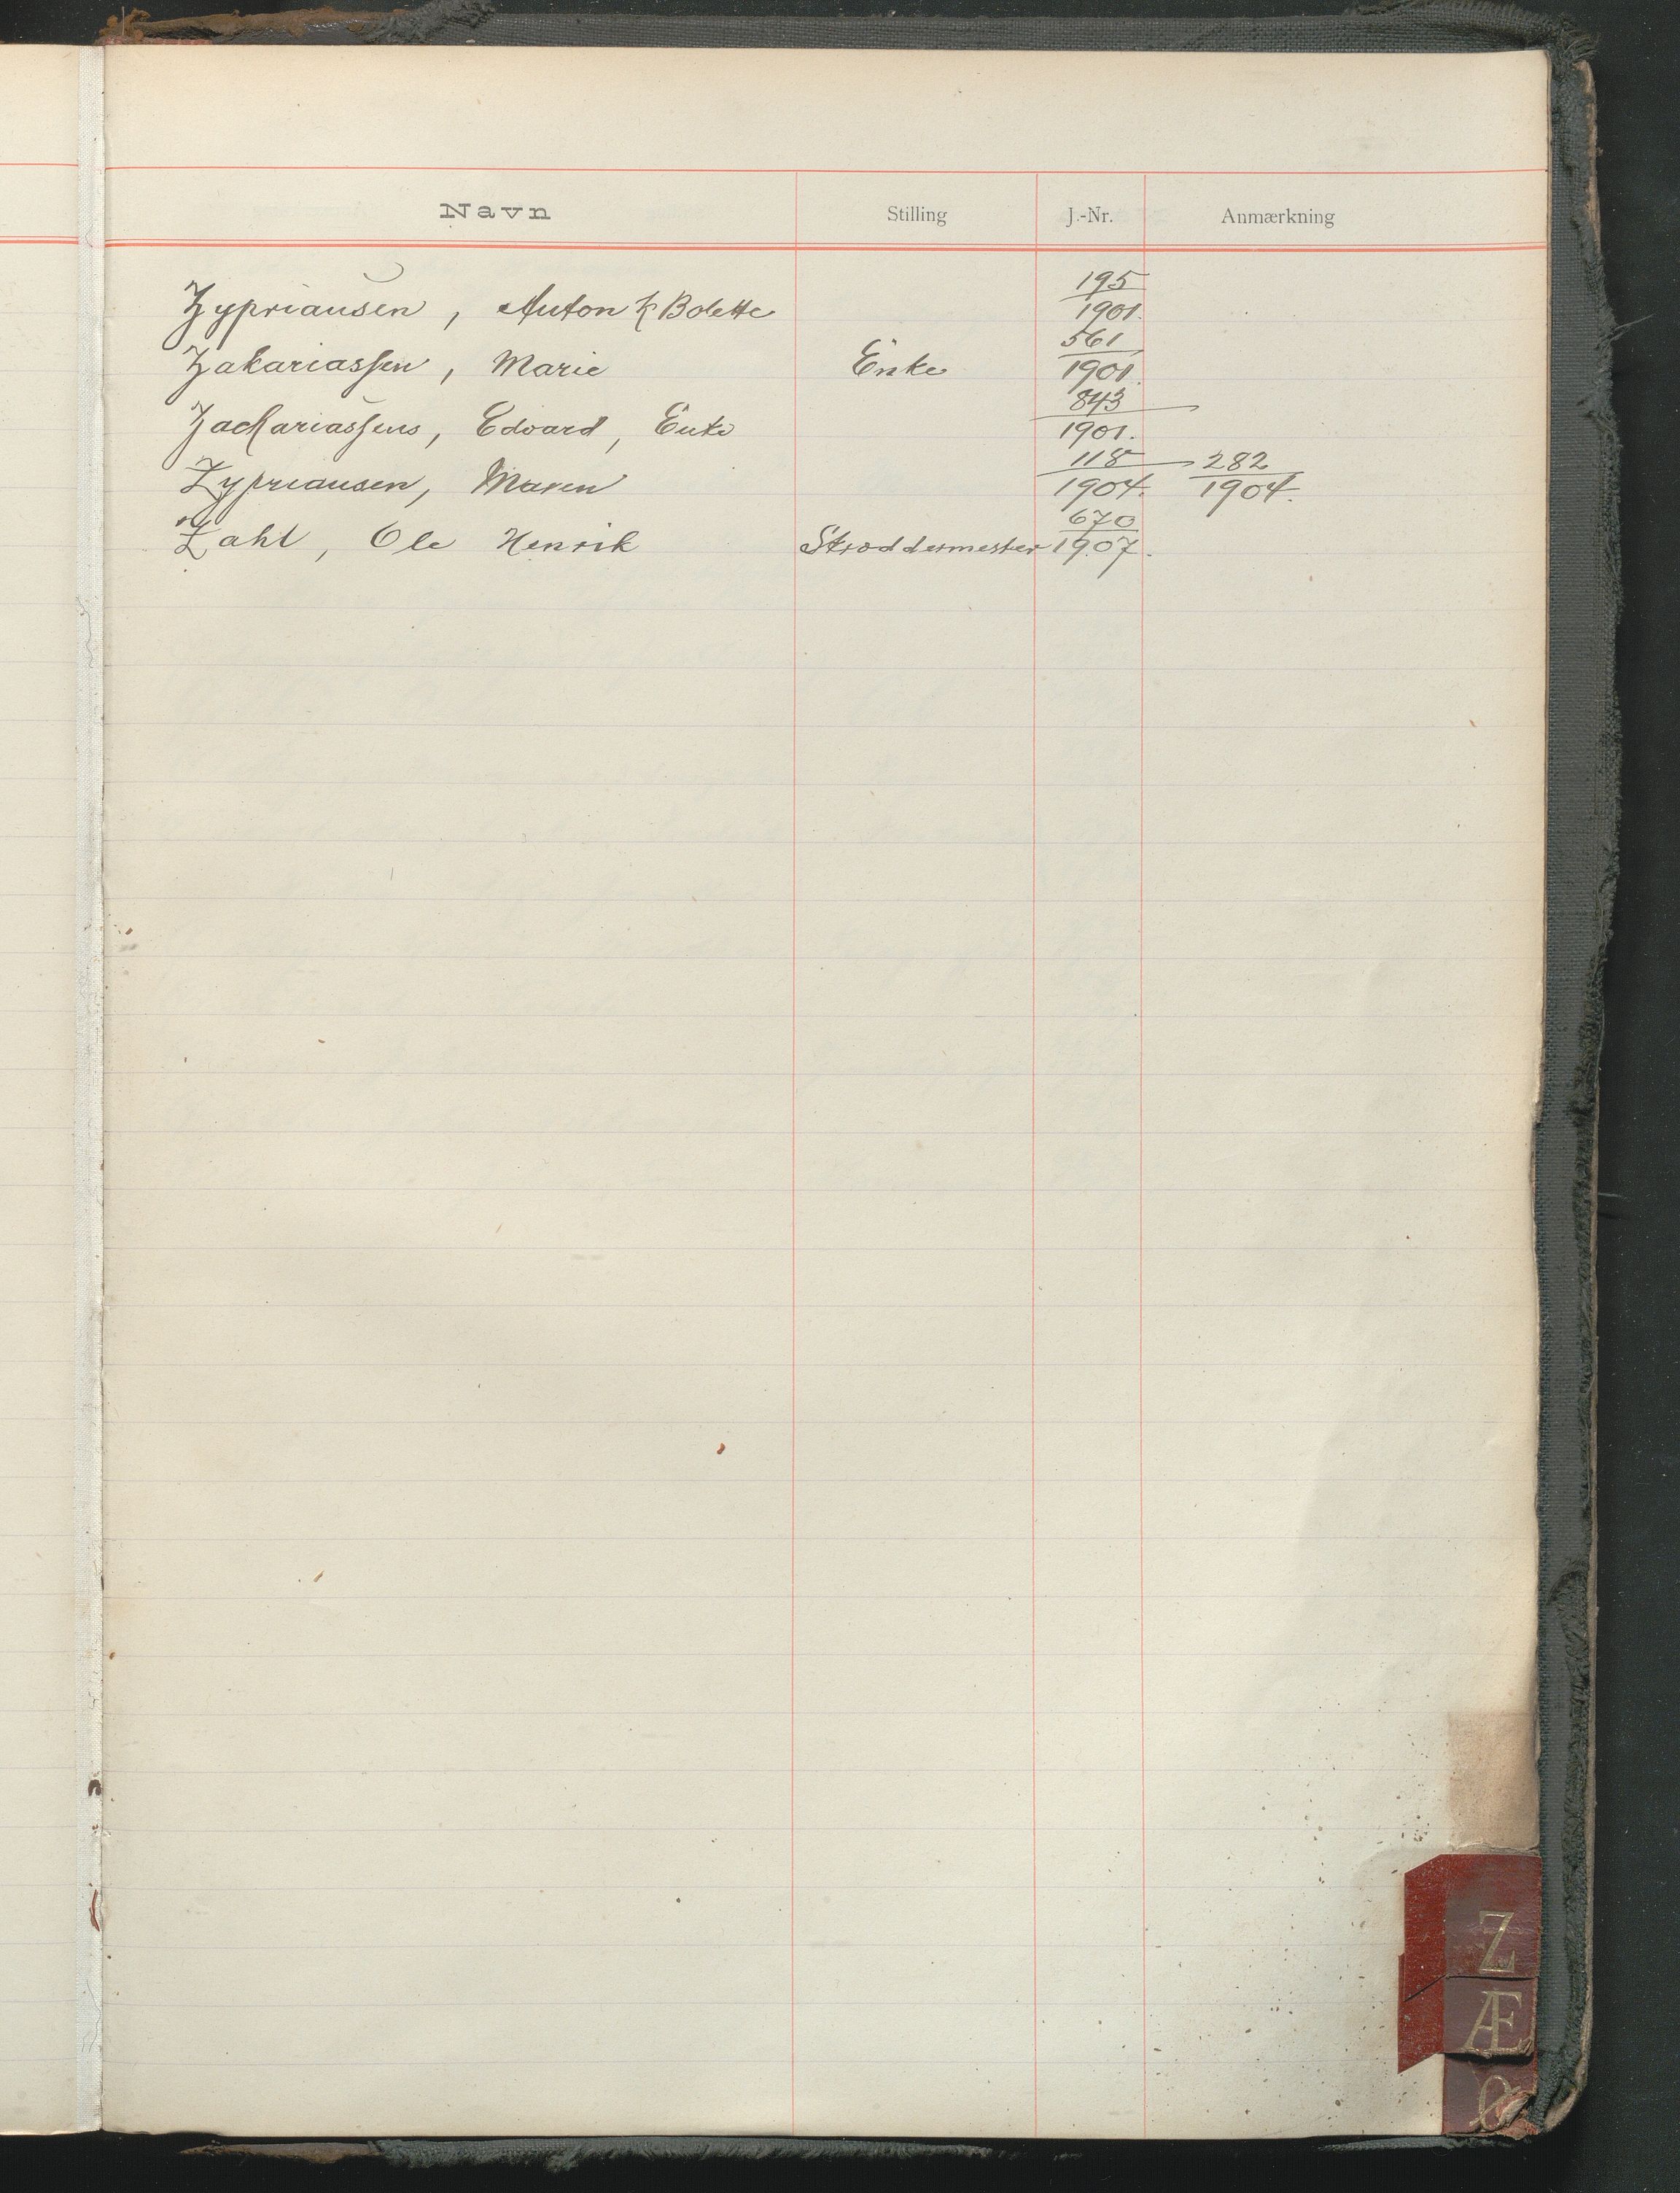 Navn Stilling J.-Nr. Anmærkning
Zypriansen, Anton & Bolette 195/1901.
Zakariassen, Marie Enke 561/1901.
Zachariassens, Edvard, Enke 843/1901.
Zypriansen, Maren 118/1904. 282/1904.
Zahl, Ole Henrik Skræddermester 670/1907.
Z
Æ
Ø